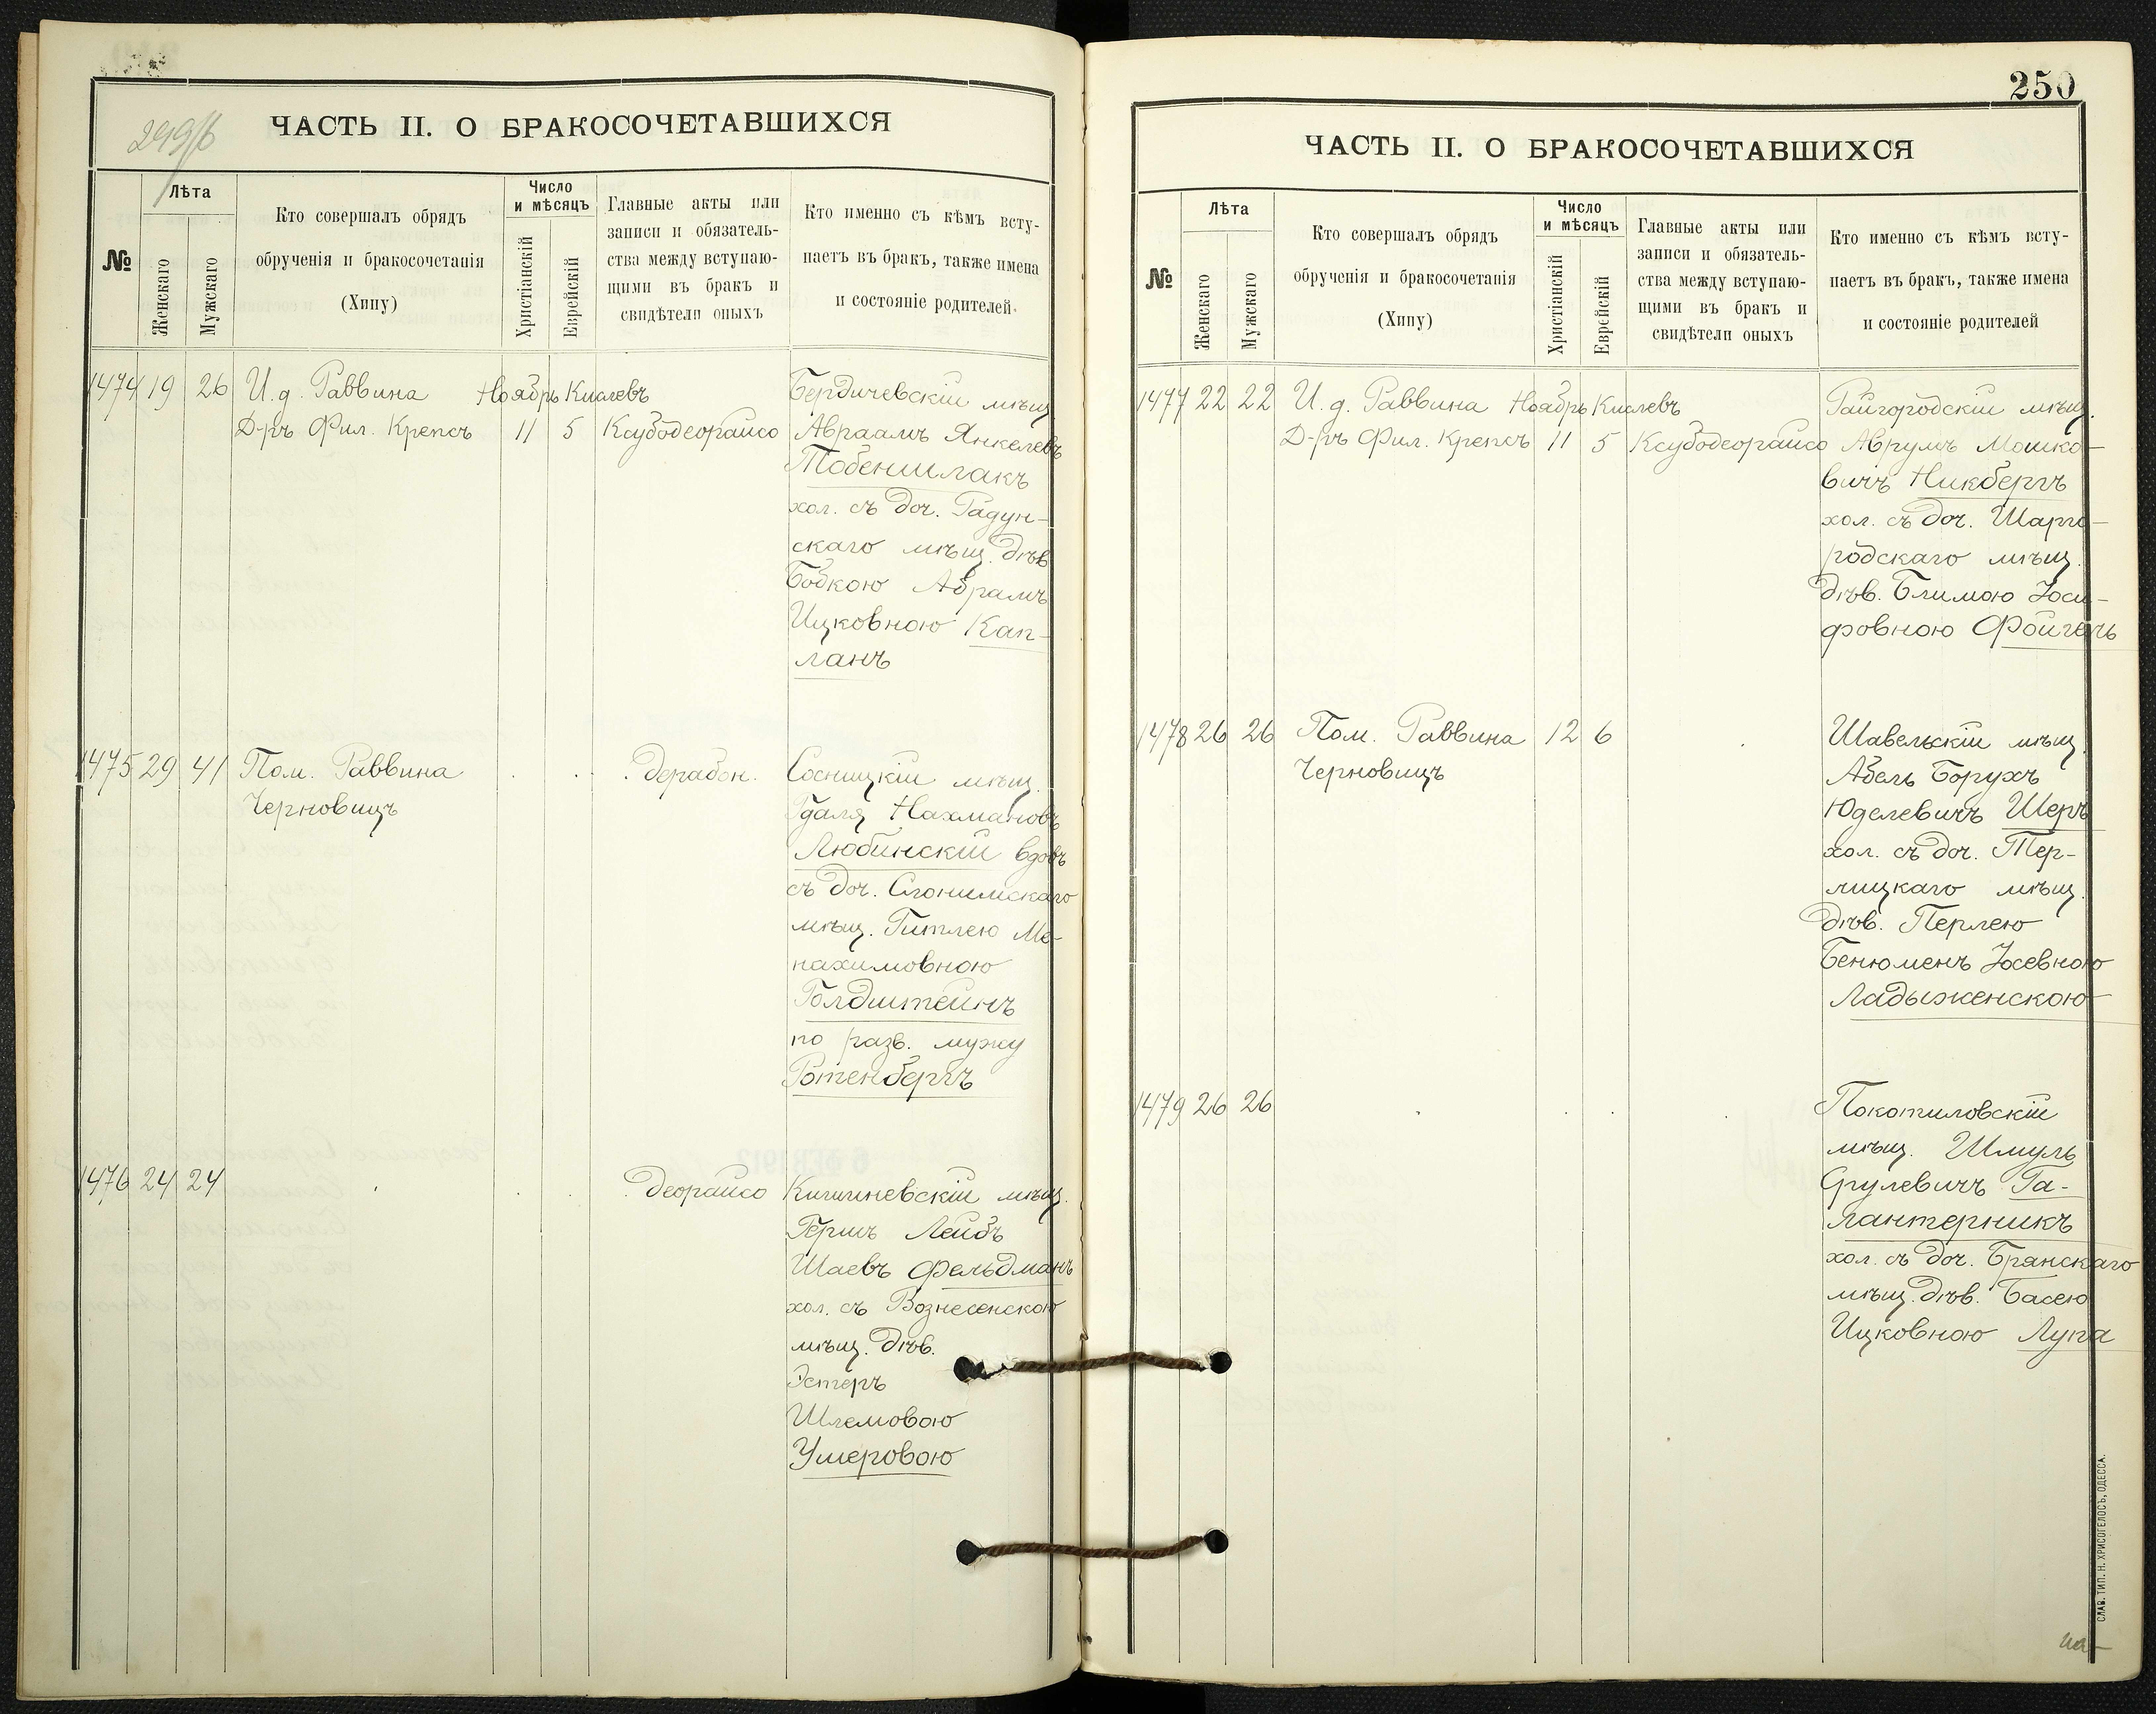 249/б
ЧАСТЬ II. О БРАКОСОЧЕТАВШИХСЯ
№
Лѣта
Женскаго
Мужскаго
Кто совершалъ обрядъ
обрученія и бракосочетанія
(Хипу)
Число
и мѣсяцъ
Христіанскій
Еврейскій
Главные акты или
записи и обязатель-
ства между вступаю-
щими въ бракъ и
свидѣтели оныхъ
Кто именно съ кѣмъ всту-
паетъ въ бракъ, также имена
и состояніе родителей
1474 19 26 И. д. Раввина Ноябрь Кислевъ
Д-ръ Фил. Крепсъ 11 5 Ксубодеорайсо
Бердичевскій мѣщ.
Авраамъ Янкелевъ
Тобеншлакъ
хол. съ доч. Радун-
скаго мѣщ. дѣв
Бобкою Абрамъ
Ицковною Кап-
ланъ
1475 29 41 Пом. Раввина . . . . дерабон.
Черновицъ
Сосницкій мѣщ.
Гдаля Нахмановъ
Любинскій вдовъ
съ доч. Слонимскаго
мѣщ. Гитлею Ме-
нахимовною
Голдштейнъ
по разв. мужу
Ротенбергъ
1476 24 24 . . . . деорайсо
Кишиневскій мѣщ.
Гершъ Лейбъ
Шаевъ Фельдманъ
хол. съ Вознесенскою
мѣщ. дѣв.
Эстеръ
Шлемовою
Умеровою
250
ЧАСТЬ II. О БРАКОСОЧЕТАВШИХСЯ
№
Лѣта
Женскаго
Мужскаго
Кто совершалъ обрядъ
обрученія и бракосочетанія
(Хипу)
Число
и мѣсяцъ
Христіанскій
Еврейскій
Главные акты или
записи и обязатель-
ства между вступаю-
щими въ бракъ и
свидѣтели оныхъ
Кто именно съ кѣмъ всту-
паетъ въ бракъ, также имена
и состояніе родителей
1477 22 22 И. д. Раввина Ноябрь Кислевъ
Д-ръ Фил. Крепсъ 11 5 Ксубодеорайсо
Райгородскій мѣщ.
Аврумъ Мошко-
вичъ Никбергъ
хол. съ доч. Шарго-
родскаго мѣщ.
дѣв. Блимою Іоси-
фовною Фойгель
1478 26 26 Пом. Раввина 12 6 .
Черновицъ
Шавельскій мѣщ.
Абель Борухъ
Юделевичъ Шеръ
хол. съ доч. Тер-
лицкаго мѣщ.
дѣв. Перлею
Бенюменъ Іосевною
Ладыженскою
1479 26 26 . . . .
Покотиловскій
мѣщ. Шмуль
Срулевичъ Га-
лантерникъ
хол. съ доч. Брянскаго
мѣщ. дѣв. Басею
Ицковною Лупа
СЛАВ. ТИП. Н. ХРИСОГЕЛОСЪ, ОДЕССА.